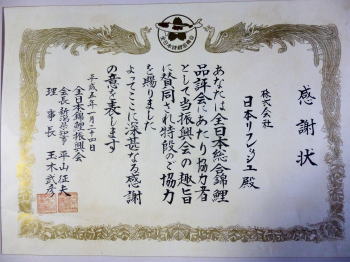 感謝状
株式会社
日本リフレッシュ殿
あなたは全日本総合錦鯉
品評会にあたり協力者
として当振興会の趣旨
に賛同され特段のご協力
を賜りました
よってここに深甚なる感謝
の意を表します
平成五年一月二十四日
全日本錦鯉振興会
会長新潟県知事 平山征夫
理事長 玉木武彦